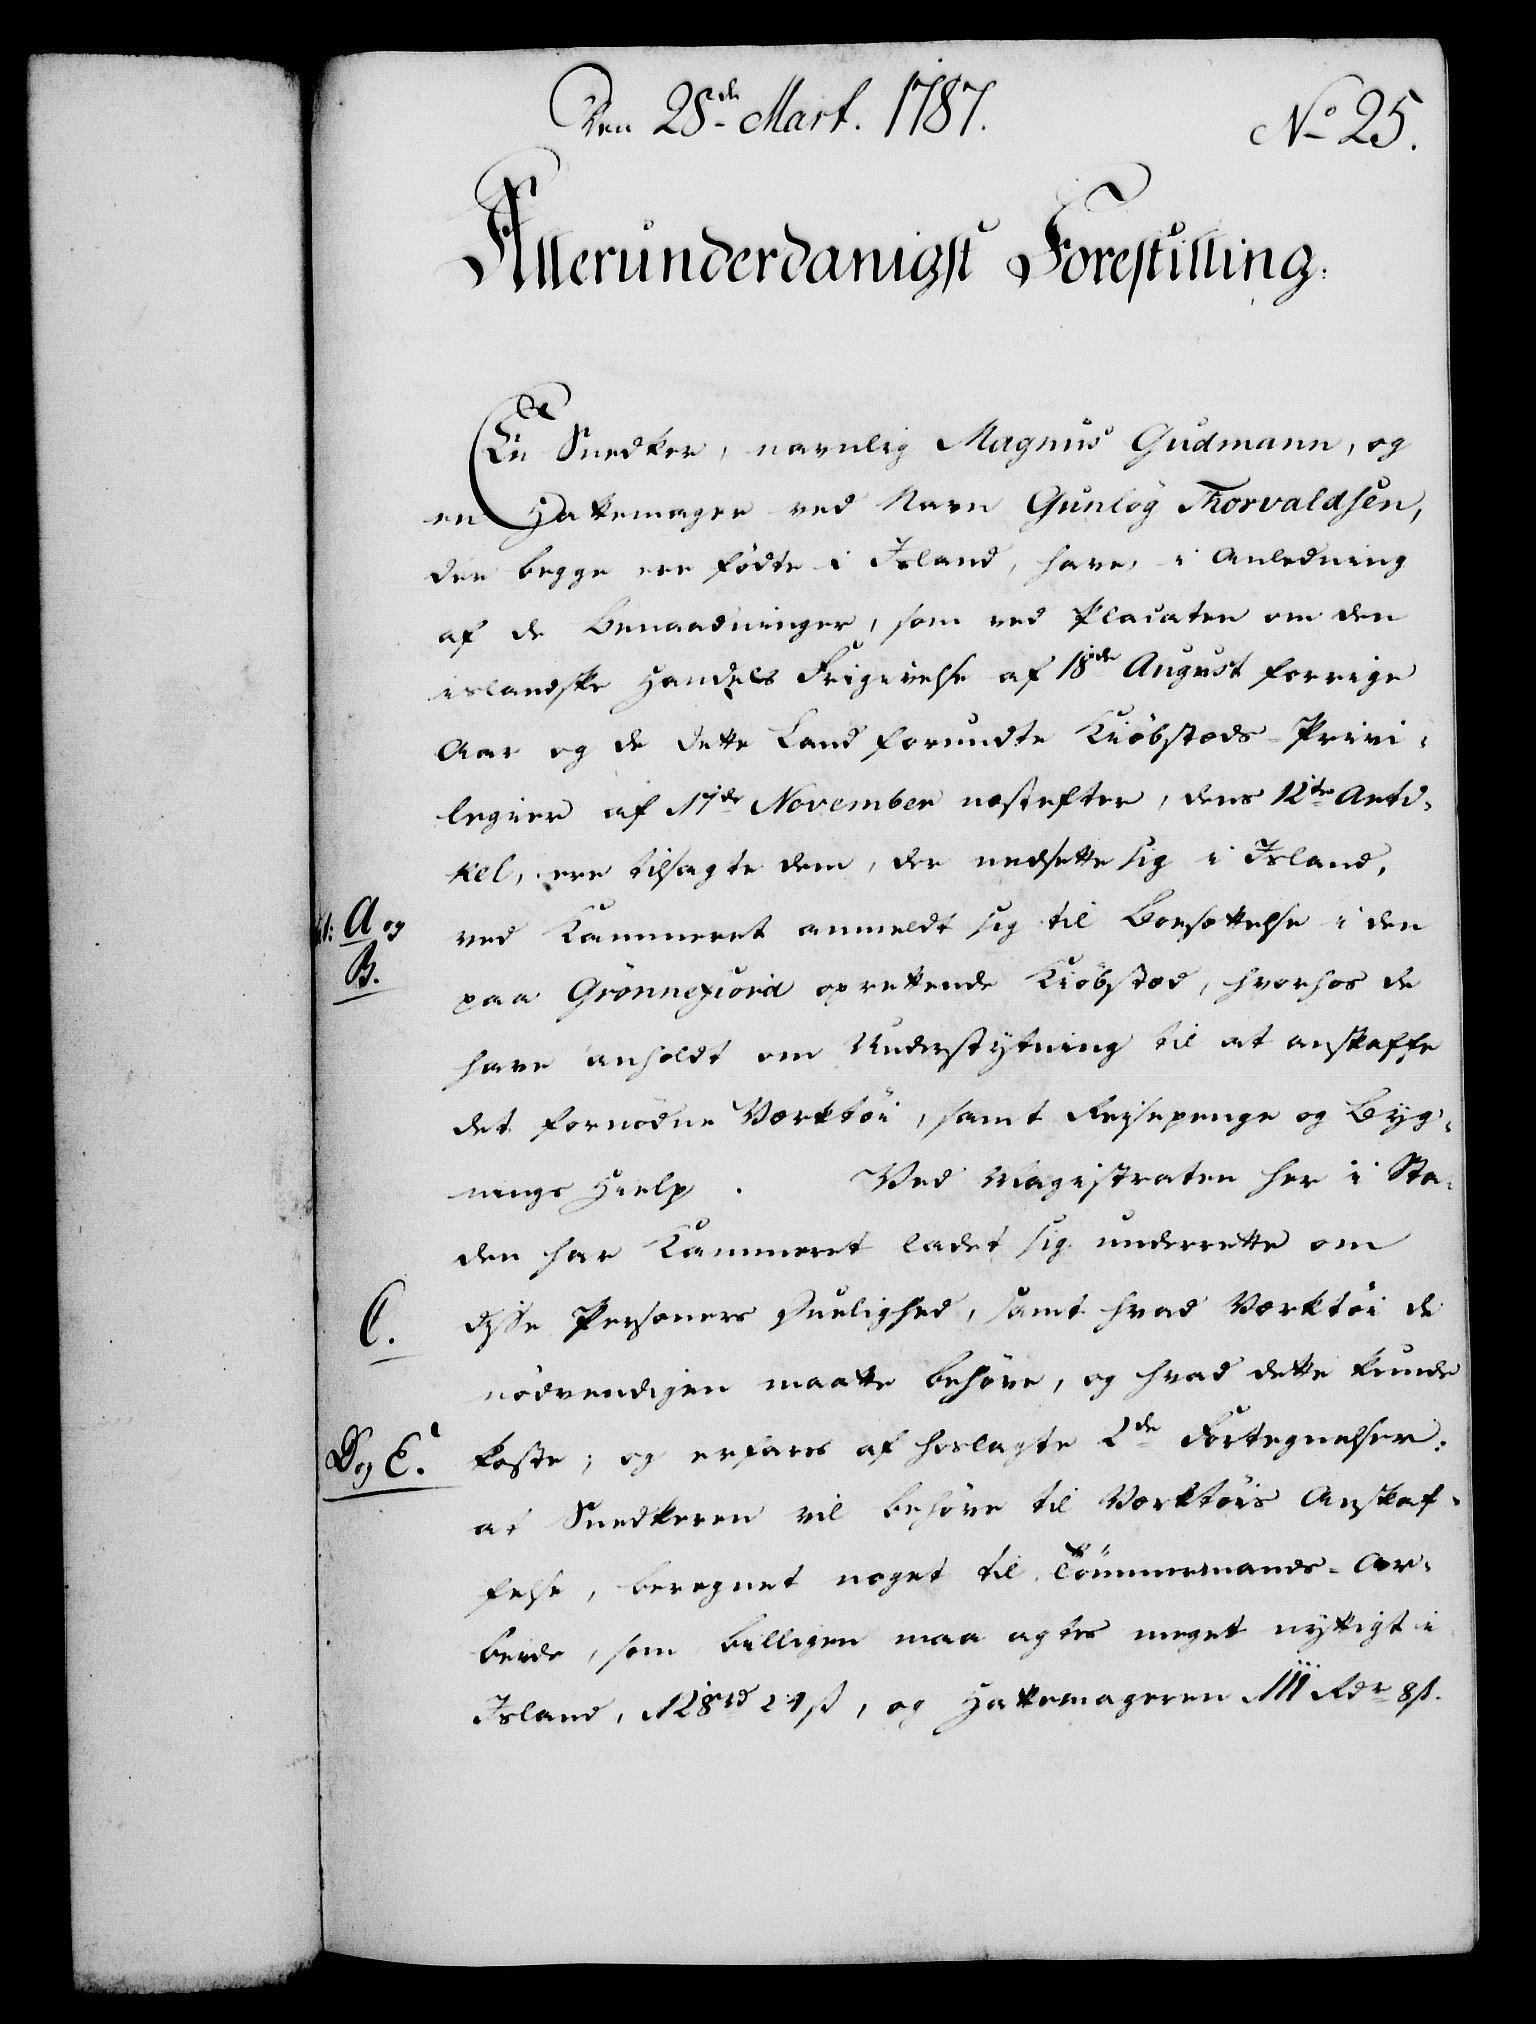 Den 28de Mart. 1787.
No 25.
Allerunderdanigst Forestilling.
En Snedker, navnlig Magnus Gudmann, og
en Hattemager ved Navn Gunlög Thorvaldsen,
der begge ere födte i Island, have, i Anledning
af de Benaadninger, som ved Placaten om den
islandske Handels Frigivelse af 18de August forrige
Aar og de dette Land forundte Kiöbstæds-Privi-
legier af 17de November næstefter, dens 12te Arti-
kel, ere tilsagte dem, der nedsette sig i Island,
Lit: A og
B.
ved Kammeret anmeldt sig til Borsættelse i den
paa Grönnefiord oprettende Kiöbstæd, hvorhos de
have anholdt om Understytning til at anskaffe
det fornödne Værktöi, samt Reisepenge og Byg-
nings Hielp. Ved Magistraten her i Sta-
den har Kammeret ladet sig underrette om
C.
disse Personers Duelighed, samt hvad Værktöi de
nödvendigen maatte behöve, og hvad dette kunde
D og E.
koste; og erfares af hoslagte 2de Fortegnelser:
at Snedkeren vil behöve til Værktöis Anskaf-
felse, beregnet noget til Tömmermands-Ar-
beide, som billigen maa agtes meget nyttigt i
Island, 128rd 24ß, og Hattemageren 111 Rdr 8ß.